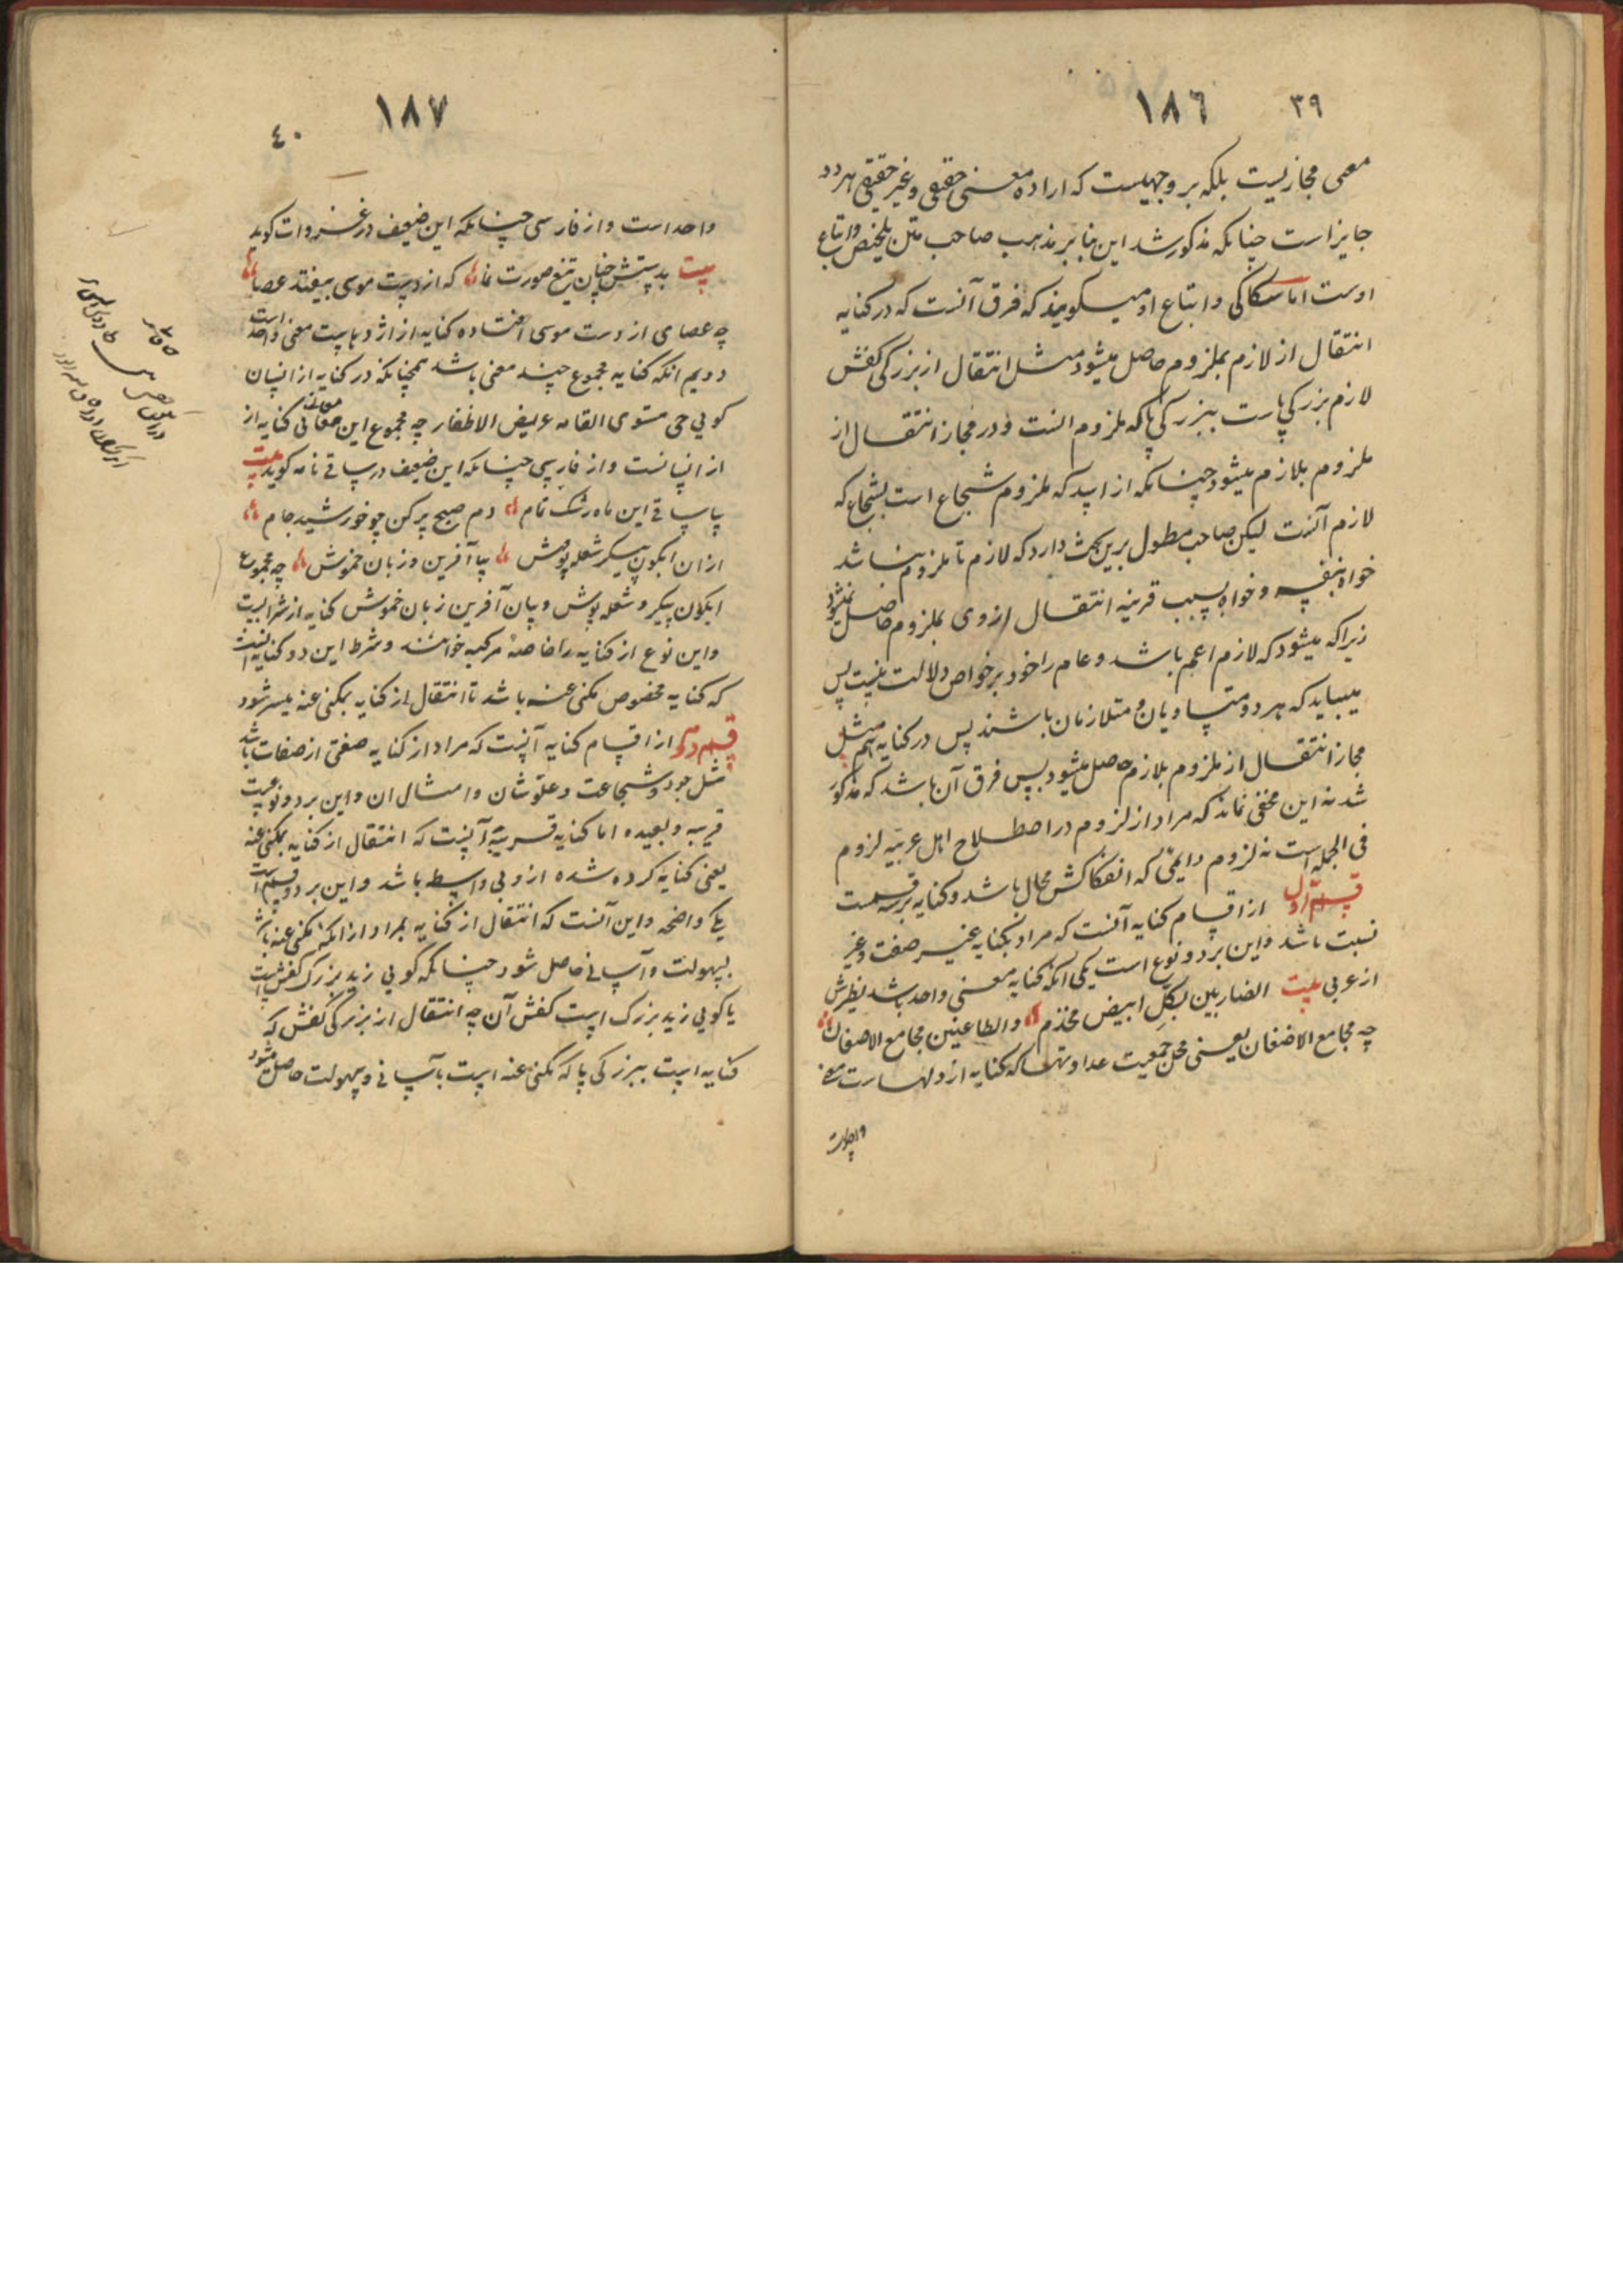 ١٨٦ ٣٩
معنی مجاز نیست بلکه بر وجهیست که اراده معنی حقیقی و غیر حقیقی هر دو
جایز است چنانکه مذکور شد این بنا بر مذهب صاحب متن تلخیص و اتباع
اوست اما سکاکی و اتباع او میکویند که فرق آنست که در کنایه
انتقال از لازم بملزوم حاصل میشود مثل انتقال از بزرکی کفش
لازم بزرکی پاست ببزرکی پا که ملزوم است و در مجاز انتقال از
ملزوم بلازم میشود چنانکه از اسد که ملزوم شجاع است بشجاع که
لازم آنست لیکن صاحب مطول برین بحث دارد که لازم تا ملزوم نباشد
خواه بنفسه و خواه بسبب قرینه انتقال از وی بملزوم حاصل نمیشود
زیرا که میشود که لازم اعم باشد و عام را خود بر خواص دلالت نیست پس
میباید که هر دو متساویان و متلازمان باشند پس در کنایه هم مثل
مجاز انتقال از ملزوم بلازم حاصل میشود پس فرق آن باشد که مذکور
شد نه این مخفی نماند که مراد از لزوم در اصطلاح اهل عربیه لزوم
فی الجمله است نه لزوم دایمی که انفکاکش محال باشد و کنایه بر سه قسمت
قسم اول از اقسام کنایه آنست که مراد بکنایه غیر صفت و غیر
نسبت باشد و این بر دو نوع است یکی انکه کنایه معنی واحد باشد نظیرش
از عربی بیت الضاربین بکل ابیض مخذم والطاعنین مجامع الاضغان
چه مجامع الاضغان یعنی محل جمعیت عداوتها که کنایه از دلهاست معنی
واحد است
١٨٧
٤٠
واحد است و از فارسی چنانکه این ضعیف در غزوات کوید
بیت بدستش چنان تیغ صورت نما که از دست موسی بیفتد عصا
چه عصای از دست موسی افتاده کنایه از اژدهاست معنی واحد است
دویم انکه کنایه مجموع چند معنی باشد همچنانکه در کنایه از انسان
کویی حی مستوی القامه عریض الاظفار چه مجموع این معانی کنایه از
از انسانست و از فارسی چنانکه این ضعیف در ساقی نامه کوید بیت
بیا ساقی این ماه رشک تمام دم صبح پر کن چو خورشید جام
از ان ابکون پیکر شعله پوش بیا آفرین و زبان خموش چه مجموع
ابکون پیکر و شعله پوش و بیان آفرین زبان خموش کنایه از شرابیت
و این نوع از کنایه را خاصه مرکبه خوانند و شرط این دو کنایه انست
که کنایه مخصوص مکنی عنه باشد تا انتقال از کنایه بمکنی عنه میسر شود
قسم دویم از اقسام کنایه آنست که مراد از کنایه صفتی از صفات باشد
مثل جود و شجاعت و علو شان و امثال ان و این بر دو نوعیست
قریبه و بعیده اما کنایه قریبه آنست که انتقال از کنایه بمکنی عنه
یعنی کنایه کرده شده از و بی واسطه باشد و این بر دو قسم است
یکی واضحه و این آنست که انتقال از کنایه بمراد از انکه مکنی عنه باشد
بسهولت و آسانی حاصل شود چنانکه کویی زید بزرک کفش است
یا کویی زید بزرک است کفش آن چه انتقال از بزرکی کفش که
کنایه است ببزرکی پا که مکنی عنه است بآسانی و سهولت حاصل میشود